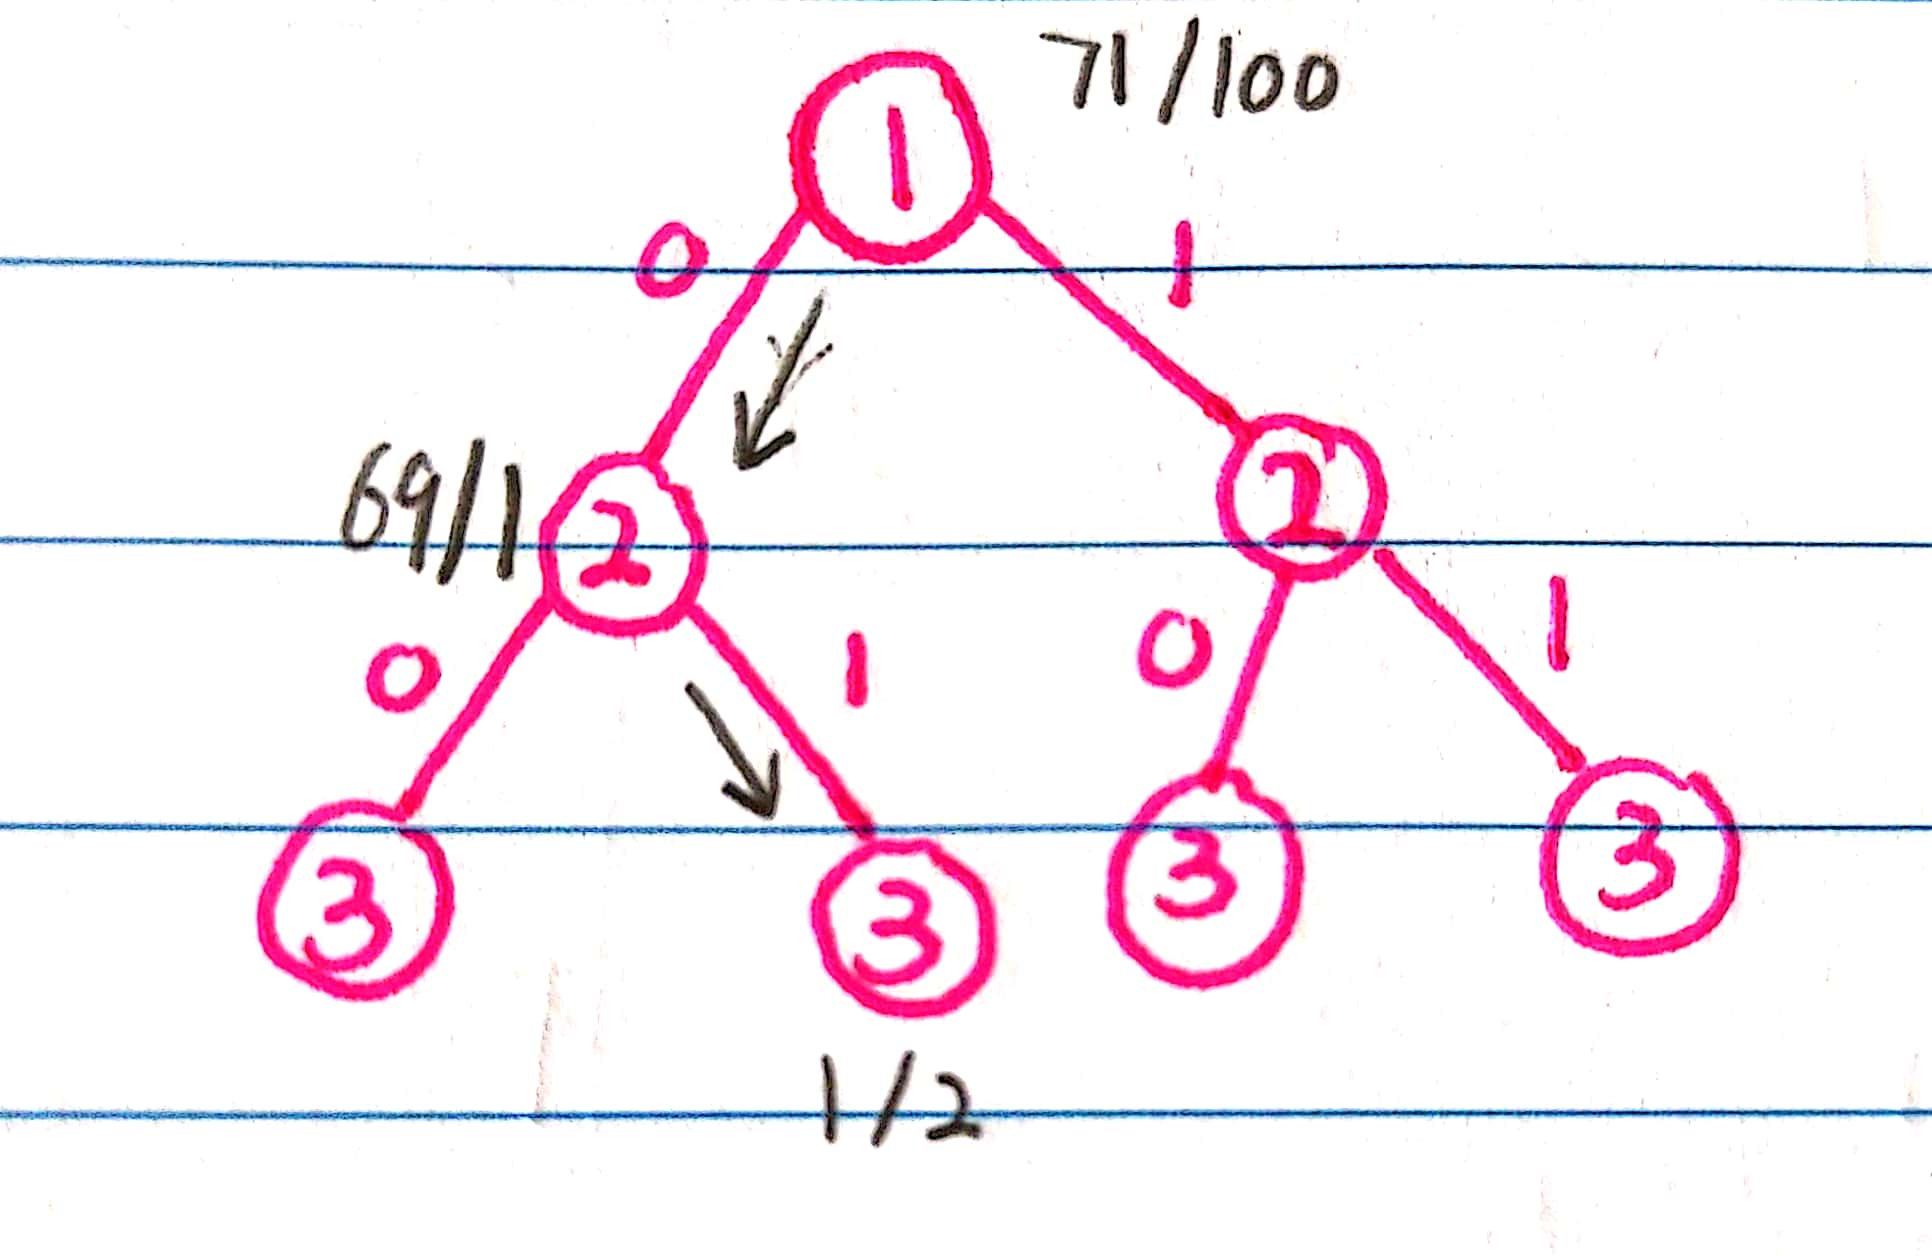 71/100
1
0 1
69/1 2 2
0 1 0 1
3 3 3 3
1/2